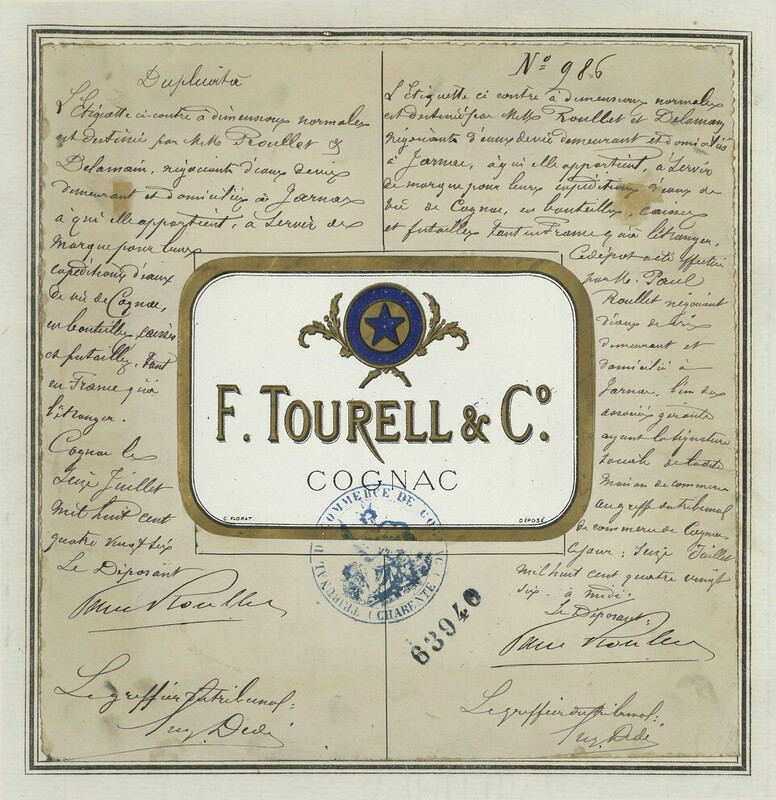 Duplicata
L'Etiquette ci-contre à dimensions normales
est destinée par M.M. Roullet &
Delamain, négociants d'eaux de vie
demeurant et domiciliés à Jarnac
à qui elle appartient, à servir de
marque pour leurs
expéditions d'eaux
de vie de Cognac,
en bouteilles, caisses
et futailles, tant
en France qu'à
l'étranger.
Cognac le
Seize Juillet
mil huit cent
quatre vingt six
Le Déposant
Paul Roullet
Le greffier du tribunal:
Aug. Dedé
No 986
L'Etiquette ci contre à dimensions normales
est destinée par M.M. Roullet et Delamain
négociants d'eaux de vie demeurant et domiciliés
à Jarnac, à qui elle appartient, à servir
de marque pour leurs expéditions d'eaux de
vie de Cognac, en bouteilles, caisses
et futailles tant en France qu'à l'étranger.
Ce dépôt a été effectué
par M. Paul
Roullet négociant
d'eaux de vie
demeurant et
domicilié à
Jarnac, l'un des
associés gérants
ayant la signature
sociale de ladite
maison de commerce
au greffe du tribunal
de commerce de Cognac
ce jour: Seize Juillet
mil huit cent quatre vingt
six à midi
Le Déposant:
Paul Roullet
Le greffier du tribunal:
Aug. Dedé
F. TOURELL & Co.
COGNAC
C. FLORAT
DÉPOSÉ
TRIBUNAL DE COMMERCE DE COGNAC
(CHARENTE)
63940